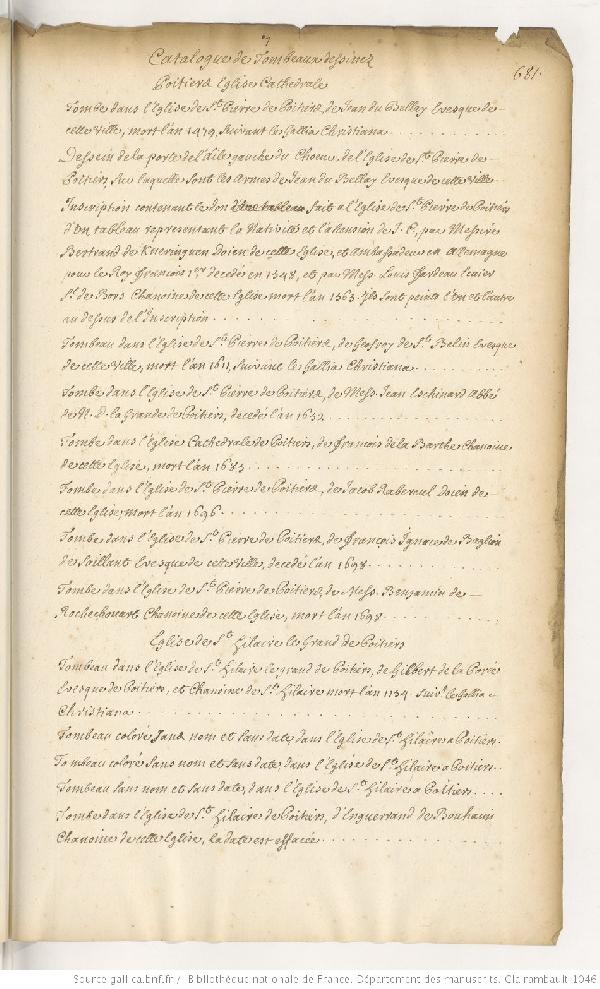 7
Catalogue de Tombeaux dessinez
681.
Poitiers Eglise Cathedrale
Tombe dans l'Eglise de St. Pierre de Poitiers, de Jean du Bellay Evesque de
cette Ville, mort l'an 1479, suivant le Gallia Christiana
Dessein de la porte de l'aile gauche du Choeur de l'Eglise de St. Pierre de
Poitiers, sur laquelle sont les Armes de Jean du Bellay Evesque de cette Ville
Inscription contenant le don fait a l'Eglise de St. Pierre de Poitiers
d'Un tableau representant la Nativité et l'al de J. C. par Messire
Bertrand de Doien de cette Eglise, et Ambassadeur en Allemagne
pour le Roy François 1er. decedés en 1548, et par Mess. Louis
Sr. de Chanoine de cette Eglise mort l'an 1563. Ils sont peints l'Un et l'autre
au dessus de l'Inscription
Tombeau dans l'Eglise de St. Pierre de Poitiers, de Geofroy de St. Belin Evesque
de cette Ville, mort l'an 1611, suivant le Gallia Christiana
Tombe dans l'Eglise de St. Pierre de Poitiers, de Mess. Jean Eschinard Abbé
de N. D. la Grande de Poitiers, decedé l'an
Tombe dans l'Eglise Cathedrale de Poitiers, de François de la Barthe Chanoine
de cette Eglise, mort l'an 1685
Tombe dans l'Eglise de St. Pierre de Poitiers, de Jacob Rabereul Doien de
cette Eglise, mort l'an 1696
Tombe dans l'Eglise de St. Pierre de Poitiers, de François Ignace de Baglion
de Saillant Evesque de cette Ville, decedé l'an 1698
Tombe dans l'Eglise de St. Pierre de Poitiers, de Mess. Benjamin de
Rochechouart Chanoine de cette Eglise, mort l'an 1698
Eglise de St. Hilaire le Grand de Poitiers
Tombeau dans l'Eglise de St. Hilaire le grand de Poitiers, de Gilbert de la Porée
Evesque de Poitiers, et Chanoine de St. Hilaire mort l'an 1154. suivt. le Gallia
Christiana
Tombeau coloré sans nom et sans date, dans l'Eglise de St. Hilaire a Poitiers
Tombeau coloré sans nom et sans date, dans l'Eglise de St. Hilaire a Poitiers
Tombeau sans nom et sans date, dans l'Eglise de St. Hilaire a Poitiers
Tombe dans l'Eglise de St. Hilaire de Poitiers, d'Enguerrand de
Chanoine de cette Eglise, la date est effacée
Source gallica.bnf.fr / Bibliothèque nationale de France. Département des manuscrits. Clairambault 1046